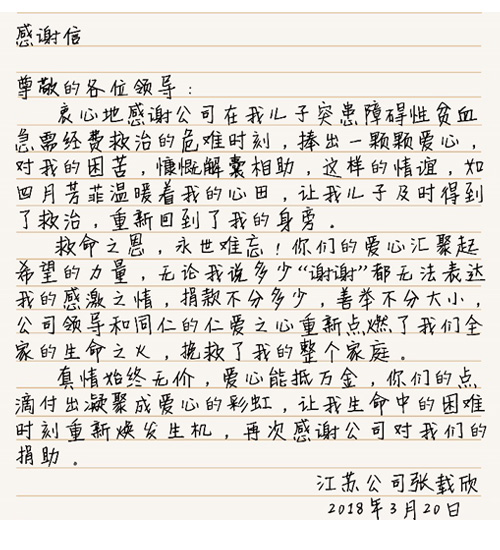 感谢信
尊敬的各位领导：
衷心地感谢公司在我儿子突患障碍性贫血
急需经费救治的危难时刻，捧出一颗颗爱心，
对我的困苦，慷慨解囊相助，这样的情谊，如
四月芳菲温暖着我的心田，让我儿子及时得到
了救治，重新回到了我的身旁。
救命之恩，永世难忘！你们的爱心汇聚起
希望的力量，无论我说多少“谢谢”都无法表达
我的感激之情，捐款不分多少，善举不分大小，
公司领导和同仁的仁爱之心重新点燃了我们全
家的生命之火，挽救了我的整个家庭。
真情始终无价，爱心能抵万金，你们的点
滴付出凝聚成爱心的彩虹，让我生命中的困难
时刻重新焕发生机，再次感谢公司对我们的
捐助。
江苏公司张载欣
2018年3月20日